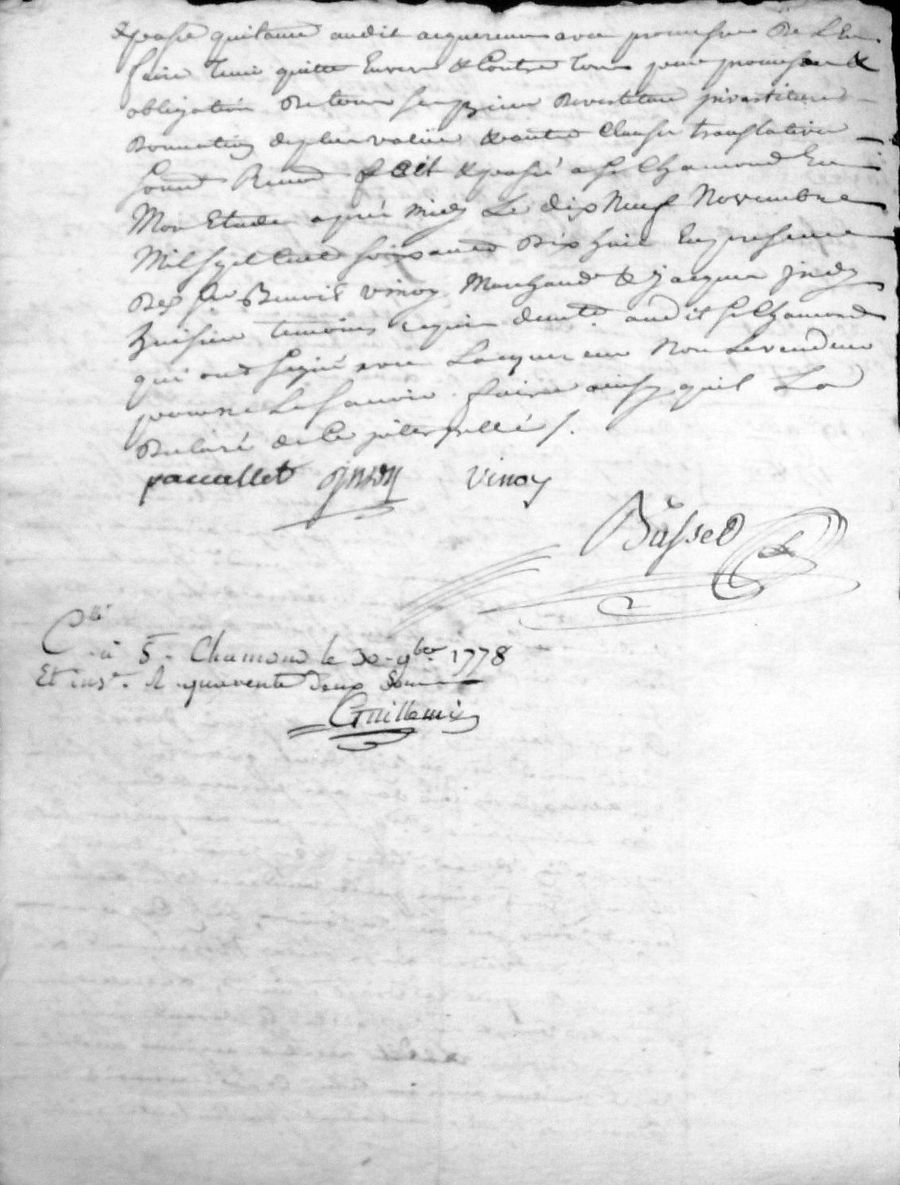 & passé quitance audit acquereur avec promesse de L'en
faire tenir quitte Envers & Contre tous sous promesses &
obligation de tous ses Biens devestiture jnvestiture
Donnation de plus value & autres Clauses translatives
fait & passé a St Chamond En
Mon Etude après midy Le dix Neuf Novembre
Mil sept Cent soixante Dix huit En presence
des Sr Benoit vinoy Marchand & jacques
huissier temoins requis demts. audit St Chamond
qui ont signé avec Lacquereur Non Le vendeur
pour ne Le sçavoir faire ainsy quil La
declaré de Ce jnterpellé /.
pascallet vinoy
Basset
Cllé à St. Chamond le 30 9bre 1778
Et ins. R quarente deux sous
Guillemin